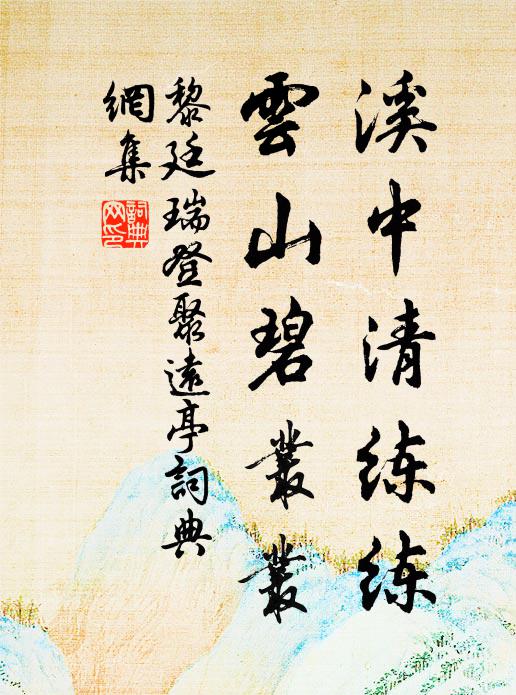 溪中清练练
雲山碧叢叢
黎廷瑞登聚遠亭詞典
網集
詞典網印